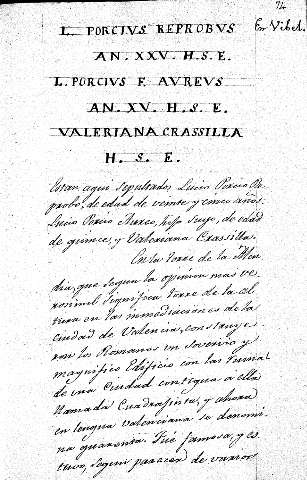 74
En Vibel.
L. PORCIVS REPROBVS
AN. XXV. H. S. E.
L. PORCIVS F. AVREVS
AN. XV. H. S. E.
VALERIANA CRASSILLA
H. S. E.
Estan aqui sepultados Lucio Porcio Re-
probo, de edad de veinte y cinco años,
Lucio Porcio Aureo, hijo suyo, de edad
de quince, y Valeriana Crassilla.
En la torre de la
que segun la opinion mas ve-
rosimil significa torre de la
en las inmediaciones de la
ciudad de Valencia, construye-
ron los Romanos un sovervio y
magnifico Edificio con las
de una Ciudad contigua a ella
llamada y ahora
en lengua valenciana se denomi-
na quaranta. Fue famosa, y es-
tuvo, segun parecer de varios